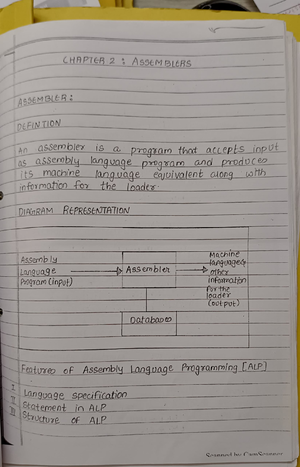 CHAPTER 2 : ASSEMBLERS
ASSEMBLER :
DEFINTION
An assembler is a program that accepts input
as assembly language program and produces
its machine language equivalent along with
information for the loader.
DIAGRAM REPRESENTATION
Assembly
Language
Program (input)
Assembler
Machine
language &
other
information
for the
loader
(output)
Databases
Features of Assembly Language Programming [ALP]
I Language specification
II Statement in ALP
III Structure of ALP
Scanned by CamScanner